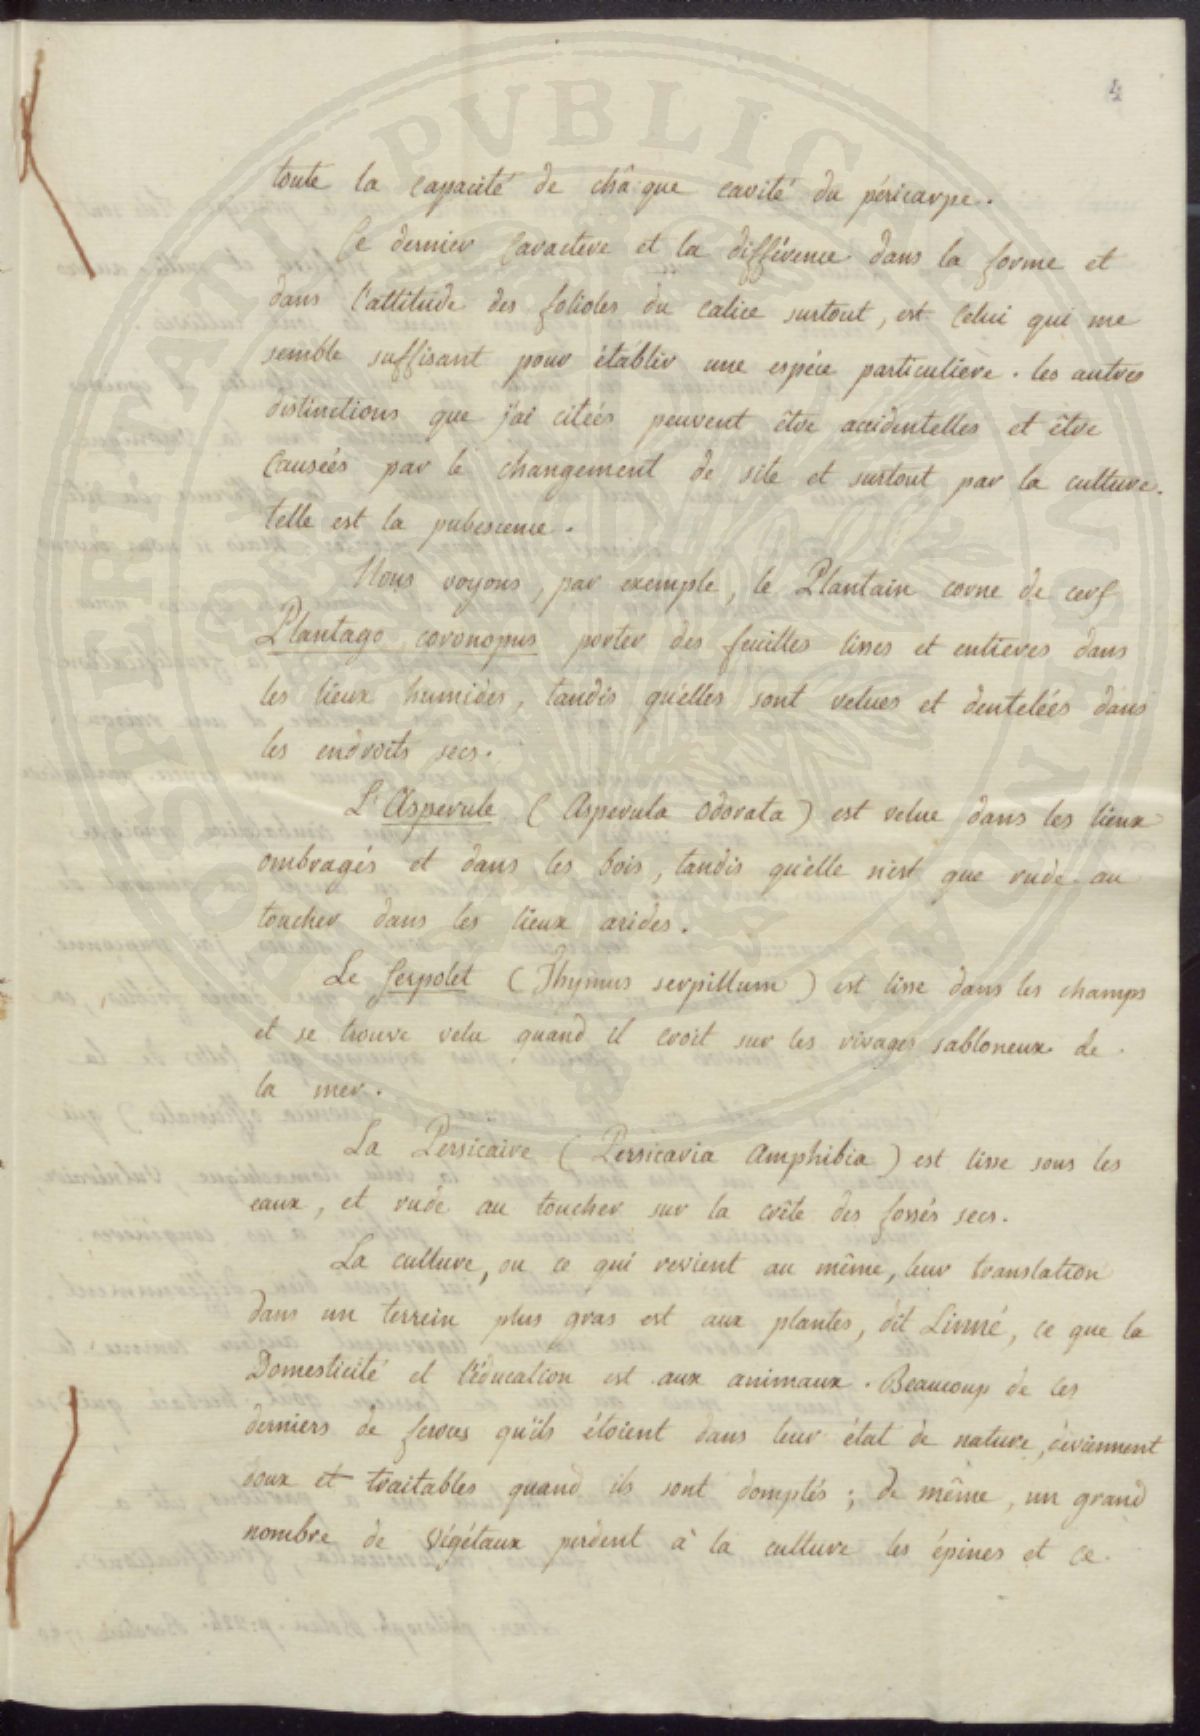 4
toute la capacité de châque cavité du péricarpe.
Ce dernier Caractere et la différence dans la forme et
dans l'attitude des folioles du calice surtout, est Celui qui me
semble suffisant pour établir une espéce particulière. les autres
distinctions que j'ai citées peuvent être accidentelles et être
Causées par le changement de site et surtout par la culture.
telle est la pubescence.
Nous voyons, par exemple, le Plantain corne de cerf
Plantago coronopus porter des feuilles lisses et entieres dans
les lieux humides, tandis qu'elles sont velues et dentelées dans
les endroits secs.
L'Asperule (Asperula Odorata) est velue dans les lieux
ombragés et dans les bois, tandis qu'elle n'est que rude au
toucher dans les lieux arides.
Le Serpolet (Thymus serpillum) est lisse dans les champs
et se trouve velu quand il croit sur les rivages sabloneux de
la mer.
La Persicaire (Persicaria Amphibia) est lisse sous les
eaux, et rude au toucher sur la crête des fossés secs.
La culture, ou ce qui revient au même, leur translation
dans un terrein plus gras est aux plantes, dit Linné, ce que la
Domesticité et l'éducation est aux animaux. Beaucoup de ces
derniers de feroces qu'ils étoient dans leur état de nature, deviennent
doux et traitables quand ils sont domptés; de même, un grand
nombre de Végétaux perdent à la culture les épines et ce
PUBLICAE